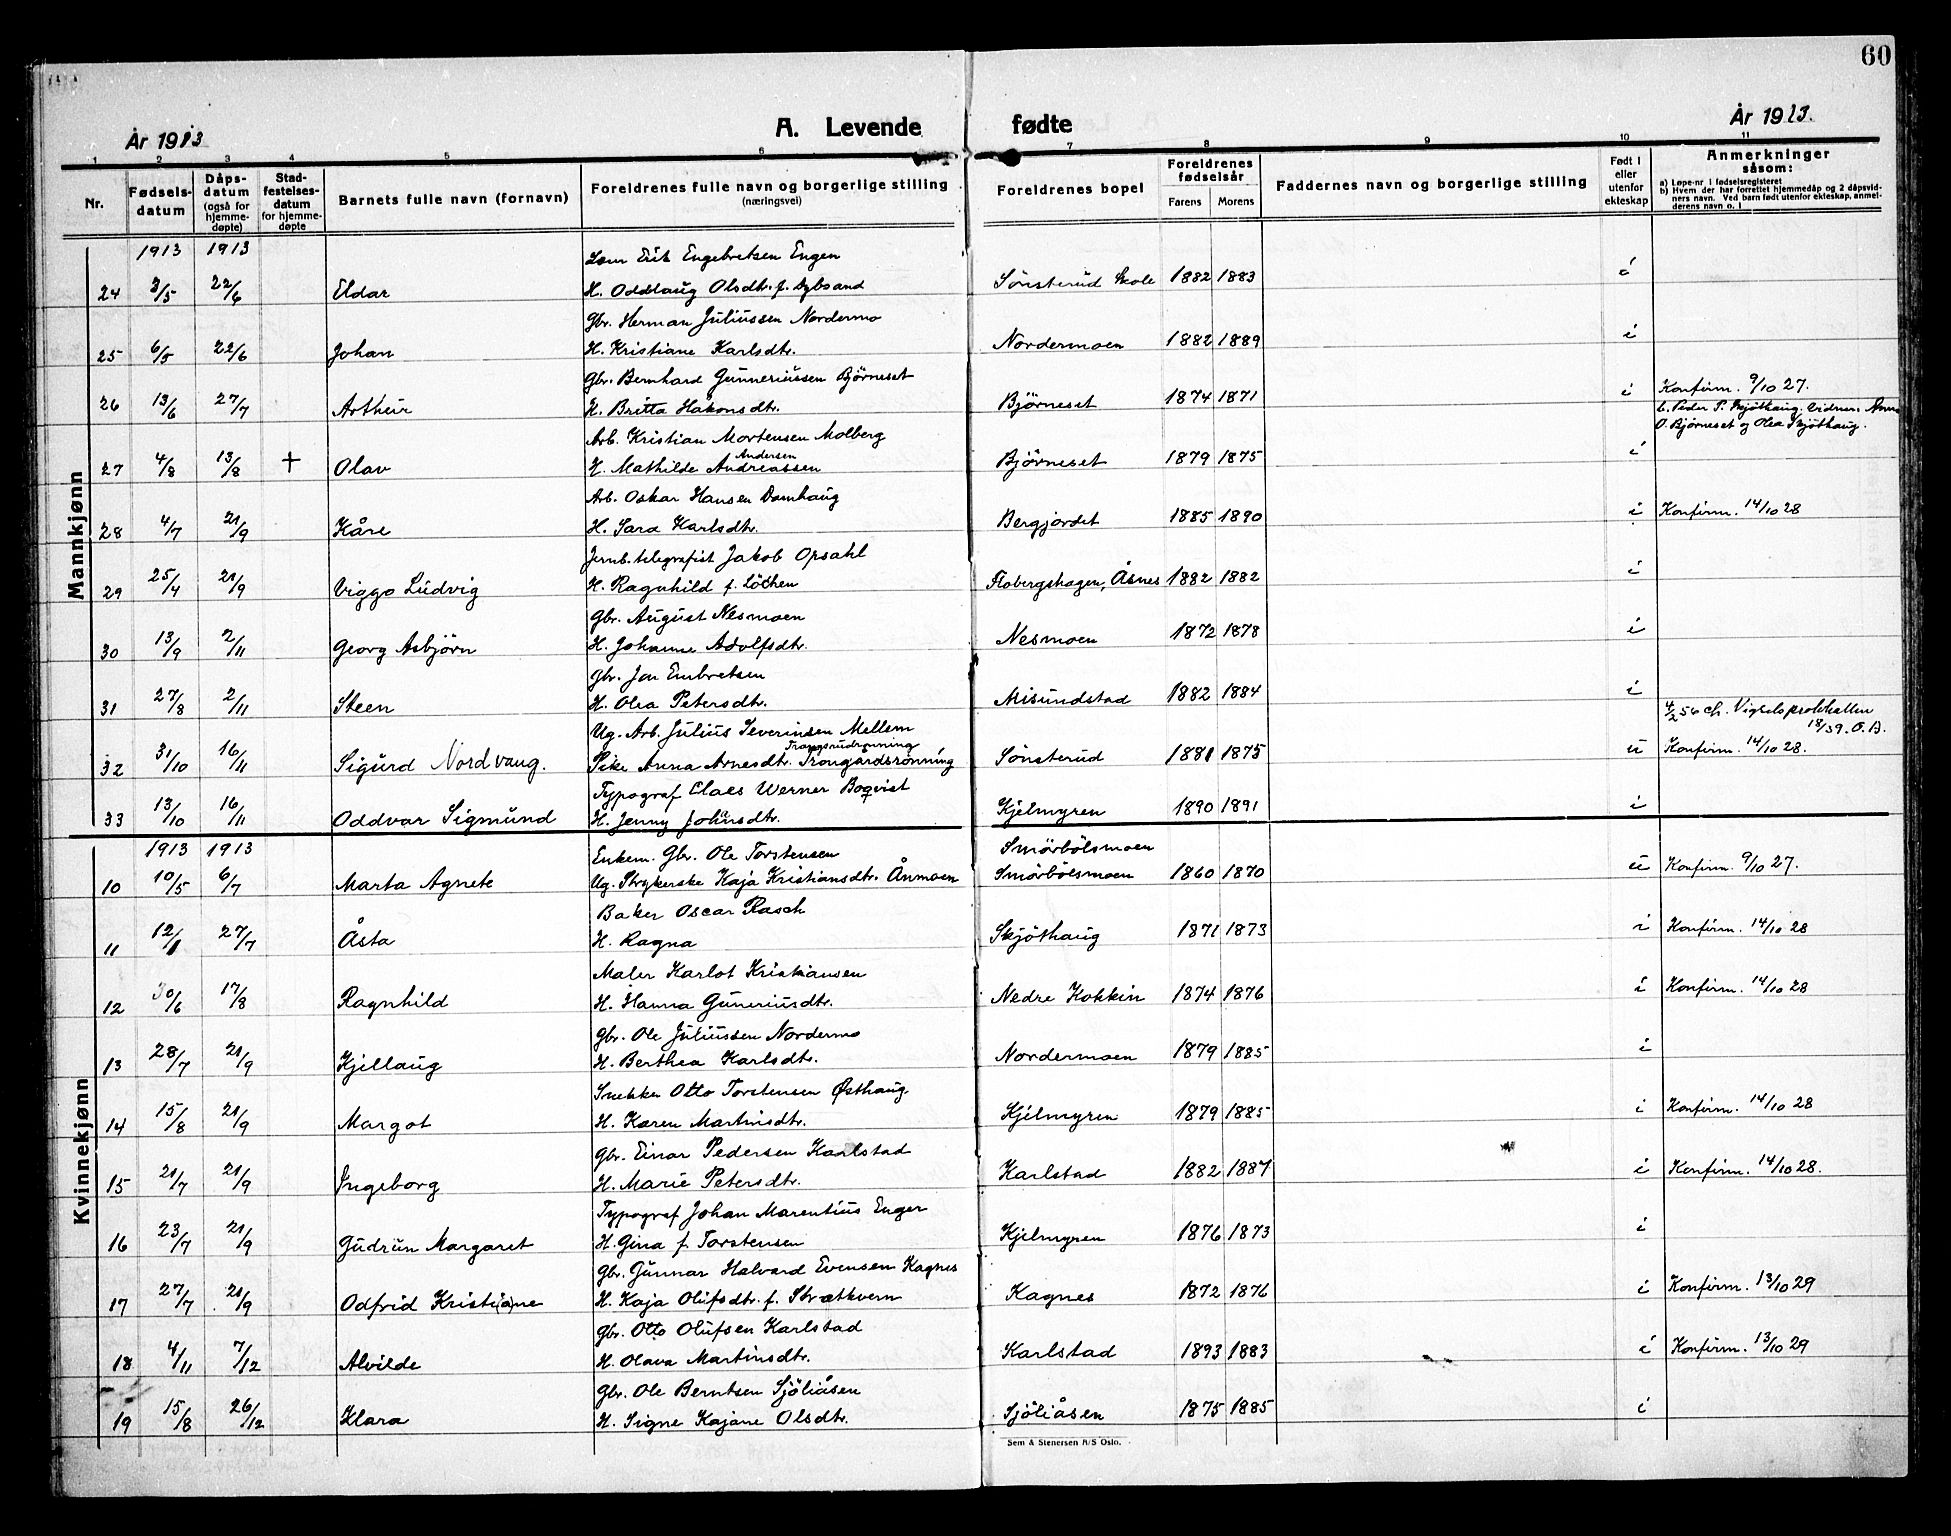 60
År 1913 A. Levende fødte År 1913.
1 2 3 4 5 6 7 8 9 10 11
Nr. Fødselsdatum Dåpsdatum (også for hjemmedøpte) Stadfestelsesdatum for hjemmedøpte Barnets fulle navn (fornavn) Foreldrenes fulle navn og borgerlige stilling (næringsvei) Foreldrenes bopel Foreldrenes fødselsår Farens Morens Faddernes navn og borgerlige stilling Født i eller utenfor ekteskap Anmerkninger såsom:
a) Løpe-nr i fødselsregisteret
b) Hvem der har forrettet hjemmedåp og 2 dåpsvidners navn. Ved barn født utenfor ekteskap, anmelderens navn o. l
Mannkjønn
1913 1913
Erik Engebretsen Engen
24 3/5 22/6 Eldar H. Oddlaug Olsdtr. f. Dybsand Sønsterud Skole 1882 1883 i
Gbr. Herman Juliussen Nordermo
25 6/5 22/6 Johan H. Kristiane Karlsdtr. Nordermoen 1882 1889 i
Gbr. Bernhard Gunneriussen Björneset
26 13/6 27/7 Arthur H. Britta Håkonsdtr. Björneset 1874 1871 i Konfirm. 9/10 27.
Arb. Kristian Mortensen Molberg
L. Peder P. Skjöthaug. Vidner: Anna O. Björneset og Olea Skjöthaug.
27 4/8 13/8 + Olav H. Mathilde Andreassen Andersen Björneset 1879 1875 i
Arb. Oskar Hansen Damhaug
28 4/7 21/9 Kåre H. Sara Karlsdtr. Bergjordet 1885 1890 i Konfirm. 14/10 28
Jernb. telegrafist Jakob Opsahl
29 25/4 21/9 Viggo Ludvig H. Ragnhild f. Löthen Flobergshagen, Åsnes 1882 1882 i
Gbr. August Nesmoen
30 13/9 2/11 Georg Asbjörn H. Johanne Adolfsdtr. Nesmoen 1872 1878 i
Gbr. Jon Embretsen
31 27/8 2/11 Steen H. Olea Petersdtr. Misundstad 1882 1884 i
Ug. Arb. Julius Severinsen Mellem
4/2 56 ch. Vigselsprotokollen 18/59. O.B.
32 31/10 16/11 Sigurd Nordvang. Pike Anna Arnesdtr. Trongårdsrönning Sönsterud 1881 1875 u Konfirm. 14/10 28.
Typograf Claes Werner Boqvist
33 13/10 16/11 Oddvar Sigmund H. Jenny Johansdtr. Kjelmyren 1890 1891 i
Kvinnekjønn
1913 1913
Enkem. Gbr. Ole Torstensen Smörbölsmoen
10 10/5 6/7 Marta Agnete Ug. Strykerske Kaja Kristiansdtr. Ånmoen Smörbölsmoen 1860 1870 u Konfirm. 9/10 27.
Baker Oscar Rasch
11 27/7 Åsta H. Ragna Skjöthaug 1871 1873 i Konfirm. 14/10 28
Maler Karlot Kristiansen
12 30/6 17/8 Ragnhild H. Hanna Guneriusdtr. Nedre Kokkin 1874 1876 i Konfirm. 14/10 28
Gbr. Ole Juliussen Nordermo
13 28/7 21/9 Kjellaug H. Berthea Karlsdtr. Nordermoen 1879 1885 i
Snekker Otto Torstensen Østhaug
14 15/8 21/9 Margot H. Karen Martinsdtr. Kjelmyren 1879 1885 i Konfirm. 14/10 28
Gbr. Einar Pedersen Karlstad
15 21/7 21/9 Ingeborg H. Marie Petersdtr. Karlstad 1882 1887 i Konfirm. 14/10 28.
Typograf Johan Marentius Enger
16 23/7 21/9 Gudrun Margaret H. Gina f. Torstensen Kjelmyren 1876 1873 i
Gbr. Gunnar Halvard Evensen Kagnes
17 27/7 21/9 Odfrid Kristi(a)ne H. Kaja Olufsdtr. f. Strætkvern Kagnes 1872 1876 i Konfirm. 13/10 29
Gbr. Otto Olufsen Karlstad
18 4/11 7/12 Alvilde H. Olava Martinsdtr. Karlstad 1893 1883 i Konfirm. 13/10 29
Gbr. Ole Berntsen Sjöliåsen
19 15/8 26/12 Klara H. Signe Kajane Olsdtr. Sjöliåsen 1875 1885 i
Sem & Stenersen A/S Oslo.